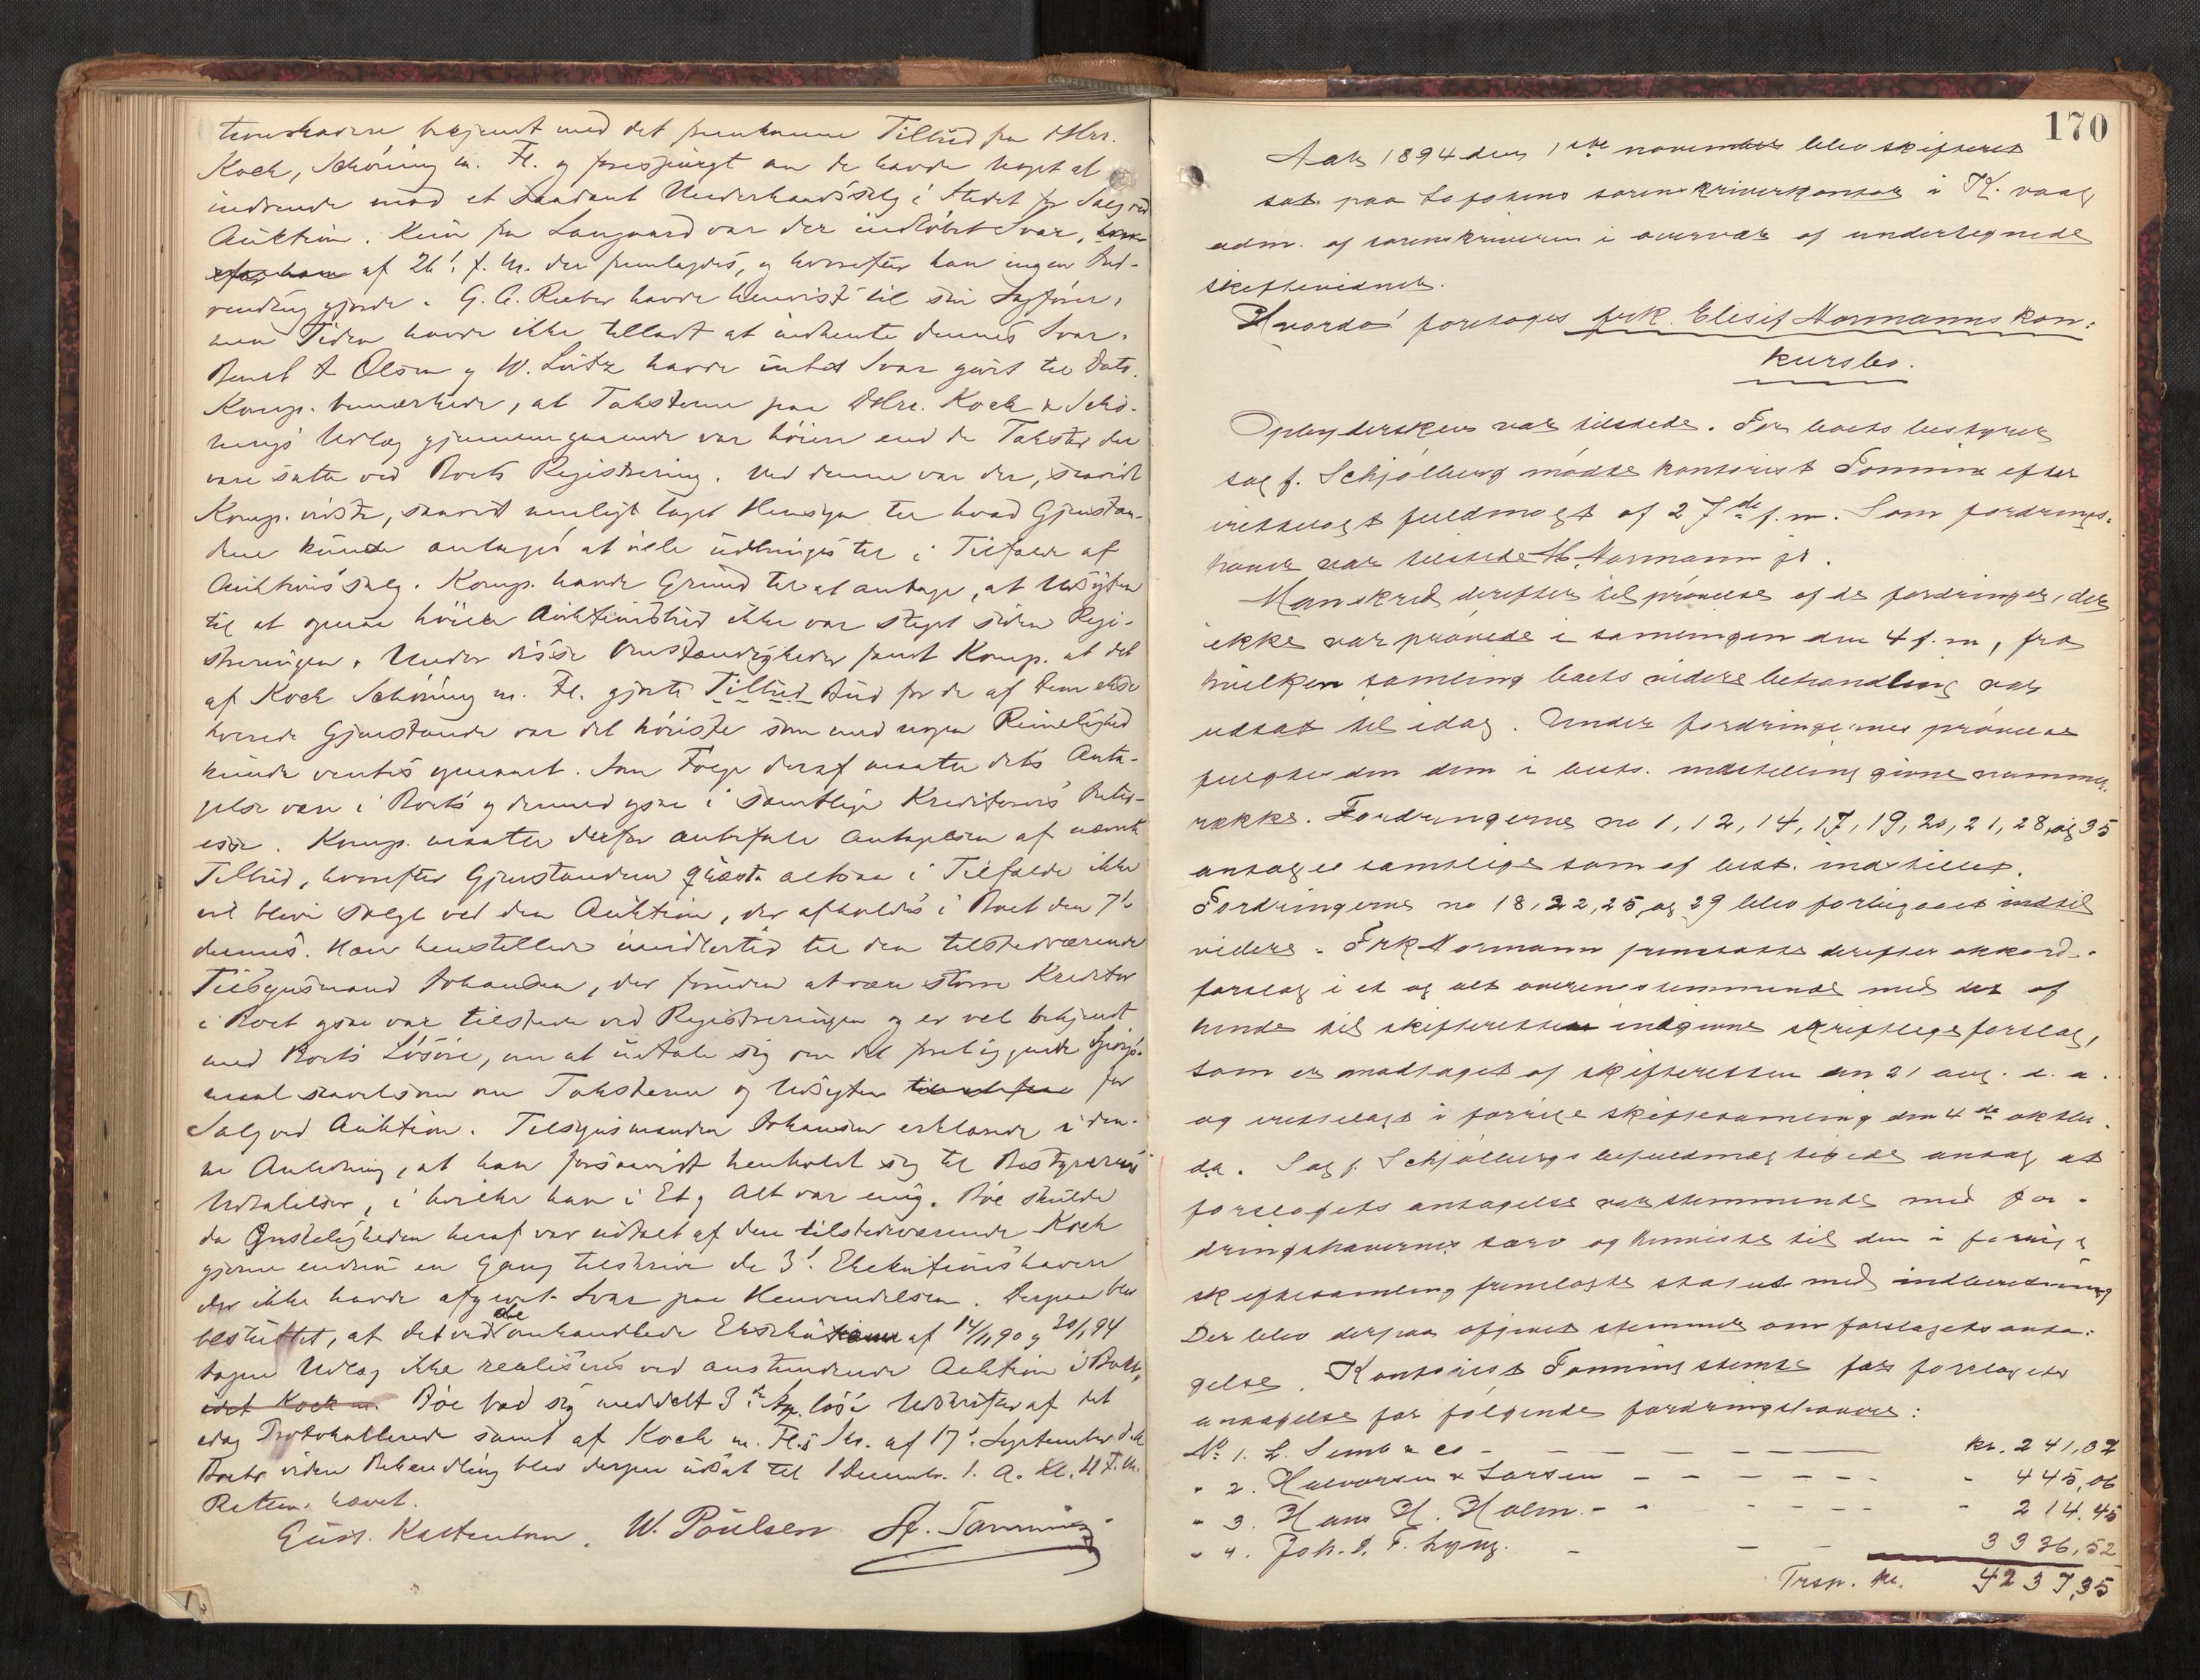 tionshavere bekjent med det fremkomne Tilbud fra DHrr.
Koch, Schöning m. Fl. og forespurgt om de havde noget at
indvende mod et saadant Underhaandssalg i Stedet for Salg ved
Auktion. Kun fra Langaard var der indløbet Svar,
af 26' f. M. der fremlagdes, og hvorefter han ingen Ind-
vending gjorde. G. C. Rieber havde henvist til sin Sagfører,
men Tiden havde ikke tilladt at indhente dennes Svar.
Berndt A Olsen og W. Lütz havde intet Svar givet til Dato.
Komp. bemærkede, at Taksterne paa DHrr. Koch & Schö-
nings Udlæg gjennemgaaende var høiere end de Takster der
vare satte ved Boets Registrering. Ved denne var der, saavidt
Komp. vidste, saavidt muligt taget Hensyn til hvad Gjenstan-
dene kunde antages at ville udbringes til i Tilfælde af
Auktionssalg. Komp. havde Grund til at antage, at Udsigten
til at opnaa høiere Auktionsbud ikke var steget siden Regi-
streringen. Under disse Omstændigheder fandt Komp. at det
af Koch Schöning m. Fl. gjorte Tilbud Bud for de af dem
hvervede Gjenstande var det høieste som med nogen Rimelighed
kunde ventes opnaaet. Som Følge deraf maatte dets Anta-
gelse være i Boets og dermed ogsaa i samtlige Kreditorers Inter-
esse. Komp. maatte derfor anbefale Antagelsen af nævnte
Tilbud, hvorefter Gjenstandene altsaa i Tilfælde ikke
vil blive solgt ved den Auktion, der afholdes i Boet den 7'
dennes. Han henstillede imidlertid til den tilstedeværende
Tilsynsmand Johansen, der foruden at være større Kreditor
i Boet ogsaa var tilstede ved Registreringen og er vel bekjendt
med Boets Løsøre, om at udtale sig om det foreliggende Spørgs-
maal saavelsom om Taksterne og Udsigten for
Salg ved Auktion. Tilsynsmanden Johansen erklærede i den-
ne Anledning, at han forsaavidt henholdt sig til Bestyrerens
Udtalelser, i hvilke han i Et og Alt var enig. Bøe skulde
da Ønskeligheden heraf var udtalt af den tilstedeværende Koch
gjerne endnu en Gang tilskrive de 3' Exekutionshavere
der ikke havde afgivet Svar paa Henvendelsen. Derpaa blev
besluttet, at det ved de omhandlede af 14/11 90 og 20/1 94
tagne Udlæg ikke realiseres ved anstundende Auktion i Boet,
idet Koch m. Bøe bad sig meddelt 3de Exp. løse Udskrifter af det
idag Protokollerede samt af Koch m. Fl.s Skr. af 17' September d. A.
Boets videre Behandling blev derpaa udsat til 1 Decembr. d. A. Kl. 4 E. M.
Retten hævet.
Gust. Kaltenborn. W. Poulsen. H. Tanning
170
Aar 1894 den 1ste november blev skifteret
sat paa Lofotens sorenskriverkontor i K. vaag
adm. af sorenskriveren i overvær af undertegnede
skiftevidner.
Hvorda! foretoges frk. Elisif Normanns kon-
kursbo.
Opbydersken var tilstede. For boets bestyrer
sag f. Schjølberg mødte kontorist Tanning efter
irettelagt fuldmagt af 27de f. m. Som fordrings-
haver var tilstede M. Normann jr.
Man skred derefter til prøvelse af de fordringer, der
ikke var prøvede i samlingen den 4 f. m, fra
hvilken samling boets videre behandling var
udsat til idag. Under fordringernes prøvelse
fulgtes den dem i bests. indstilling givne nummer-
rekke. Fordringerne no 1, 12, 14, 17, 19, 20, 21, 28, og 35
antoges samtlige som af best. indstillet.
Fordringerne no 18, 22, 25, og 29 blev forbigaaet indtil
videre. Frk Normann fremsatte derefter akkord-
forslag i et og alt overensstemmende med det af
hende til skifteretten indgivne skriftlige forslag,
som er modtaget af skifteretten den 21 aug. d. a.
og irettelagt i forrige skiftesamling den 4de oktbr.
d.a. Sag f. Schjølbergs befuldmægtigede antog at
forslagets antagelse var stemmende med for-
dringshavernes tarv og henviste til den i forrige
skiftesamling fremlagte status med indberetning
Der blev derpaa afgivet stemmer om forslagets anta-
gelse. Kontorist Tanning stemte for forslagets
antagelse for følgende fordringshavere:
No 1. L. Lemb & co - - - - kr. 241,02
" 2. Halvorsen & Larsen - - - - - " 445,06
" 3. Hans H. Holm. - - - - - - " 214,45
" 4. Joh. L. F. Lyng. - - - 3336,52
Trsp. kr. 4237,35